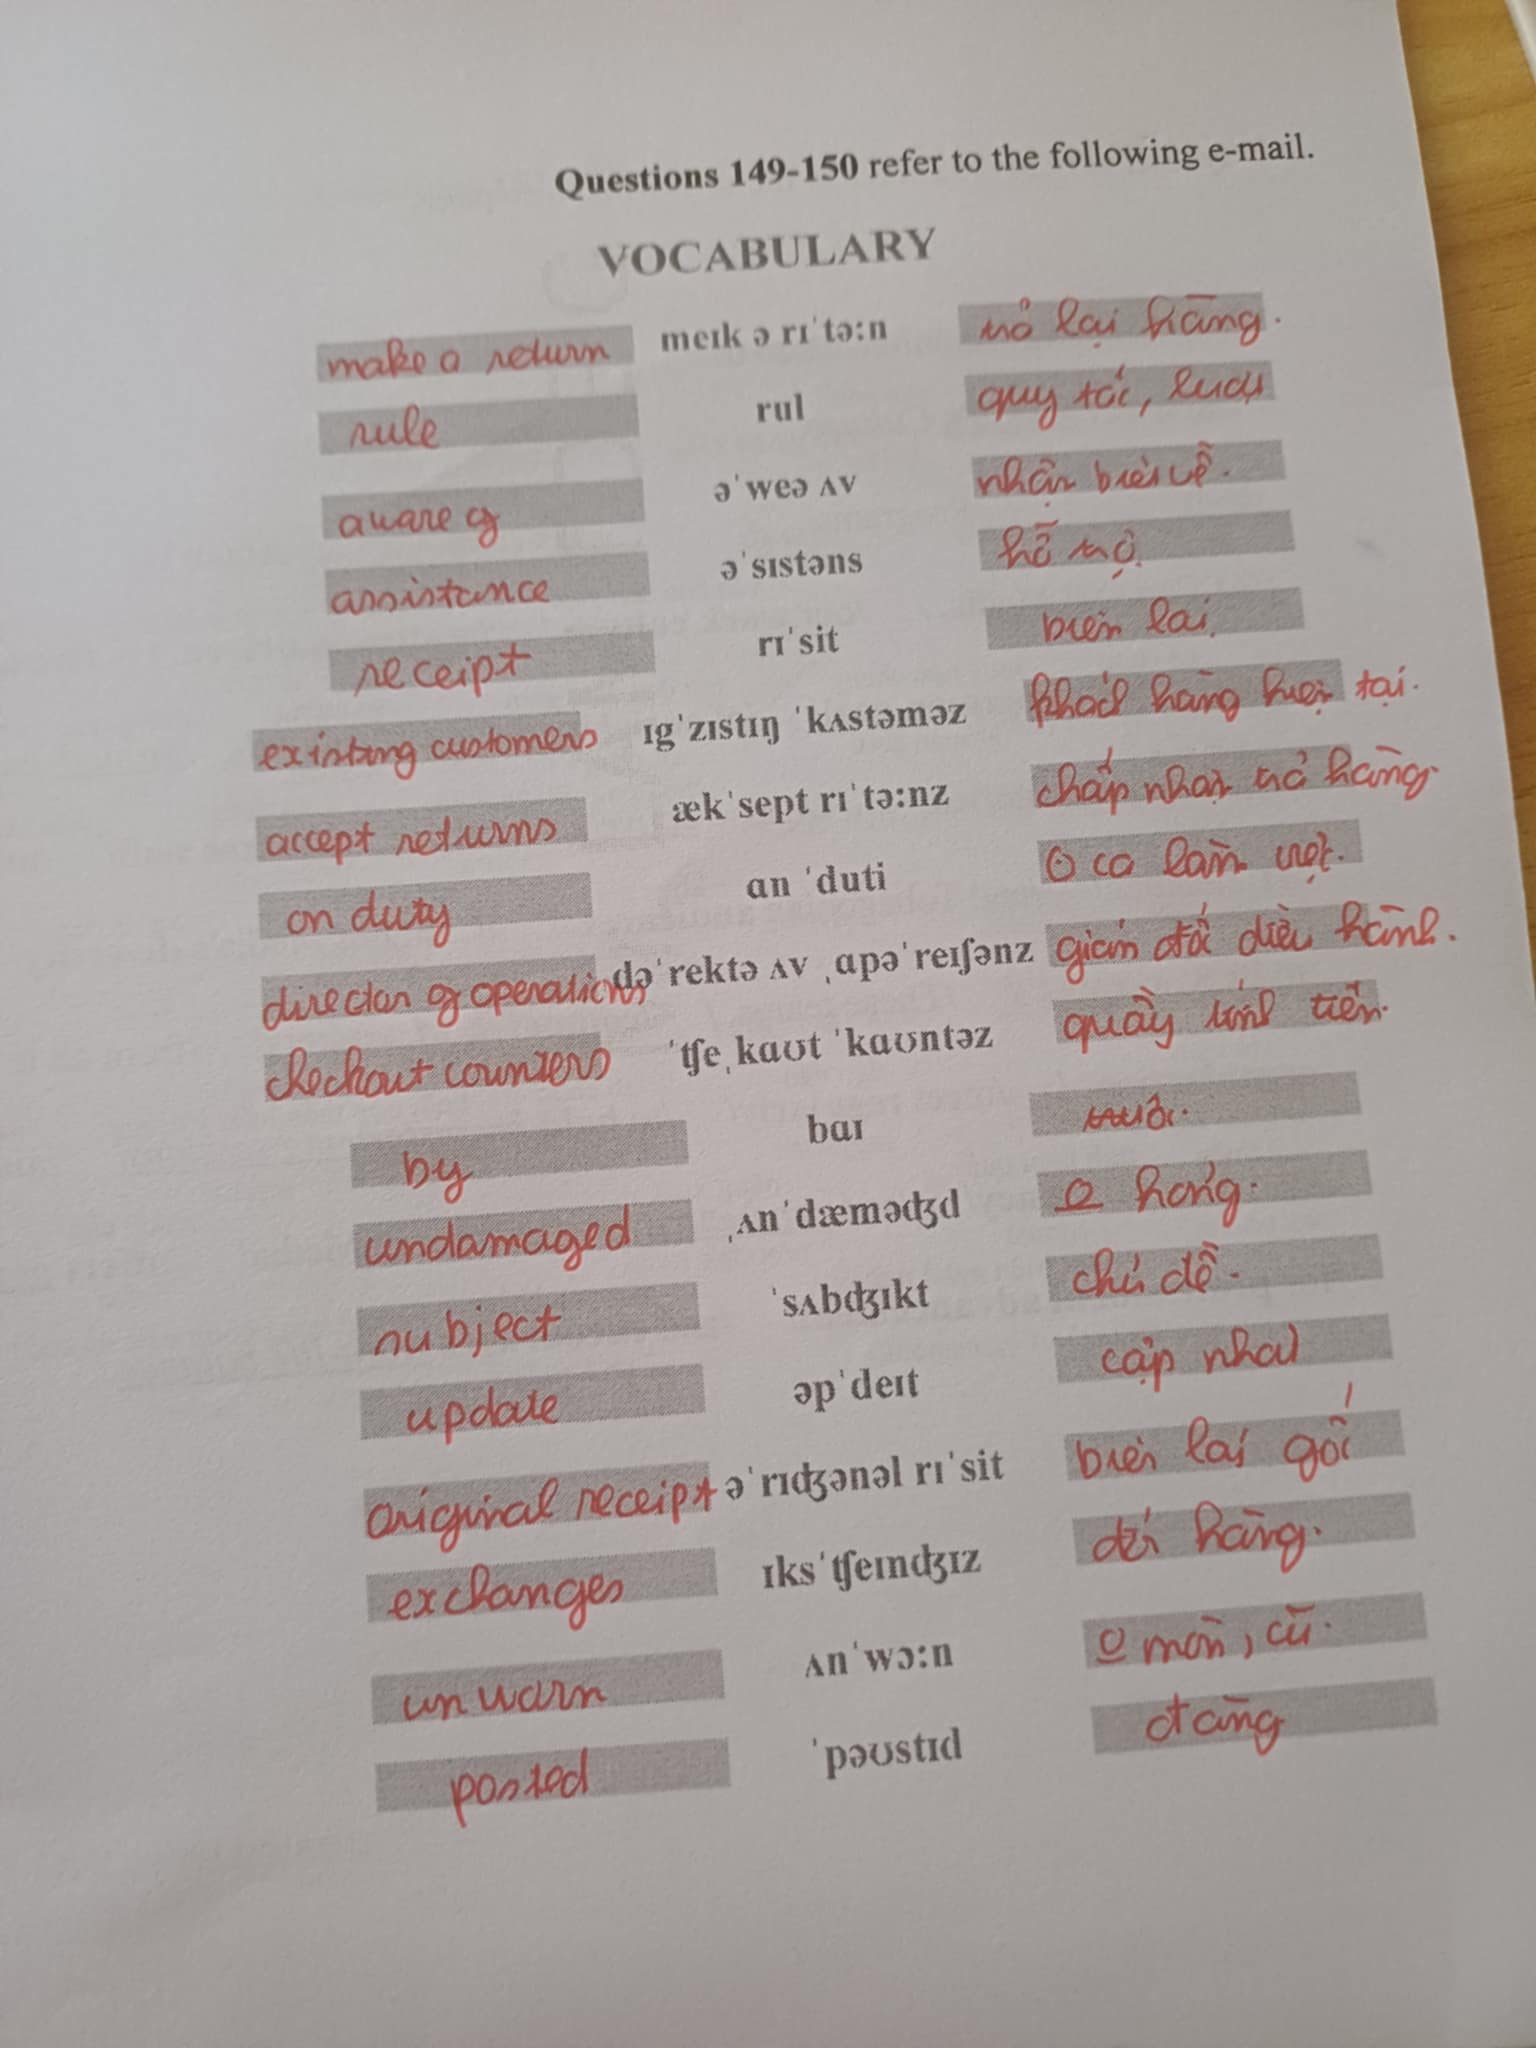 Questions 149-150 refer to the following e-mail.
VOCABULARY
make a return meɪk ə rɪˈtəːn trả lại hàng.
rule rul quy tắc, luật
aware of əˈweə ʌv nhận biết về.
assistance əˈsɪstəns hỗ trợ.
receipt rɪˈsit biên lai.
existing customers ɪgˈzɪstɪŋ ˈkʌstəməz khách hàng hiện tại.
accept returns ækˈsept rɪˈtəːnz chấp nhận trả hàng.
on duty ɑn ˈduti ở ca làm việc.
director of operations dəˈrektə ʌv ˌɑpəˈreɪʃənz giám đốc điều hành.
checkout counters ˈʧeˌkaʊt ˈkaʊntəz quầy tính tiền.
by baɪ trước.
undamaged ˌʌnˈdæməʤd o hỏng.
subject ˈsʌbʤɪkt chủ đề.
update əpˈdeɪt cập nhật
original receipt əˈrɪʤənəl rɪˈsit biên lai gốc
exchanges ɪksˈʧeɪnʤɪz đổi hàng.
unworn ʌnˈwɔːn o mòn, cũ.
posted ˈpəʊstɪd đăng